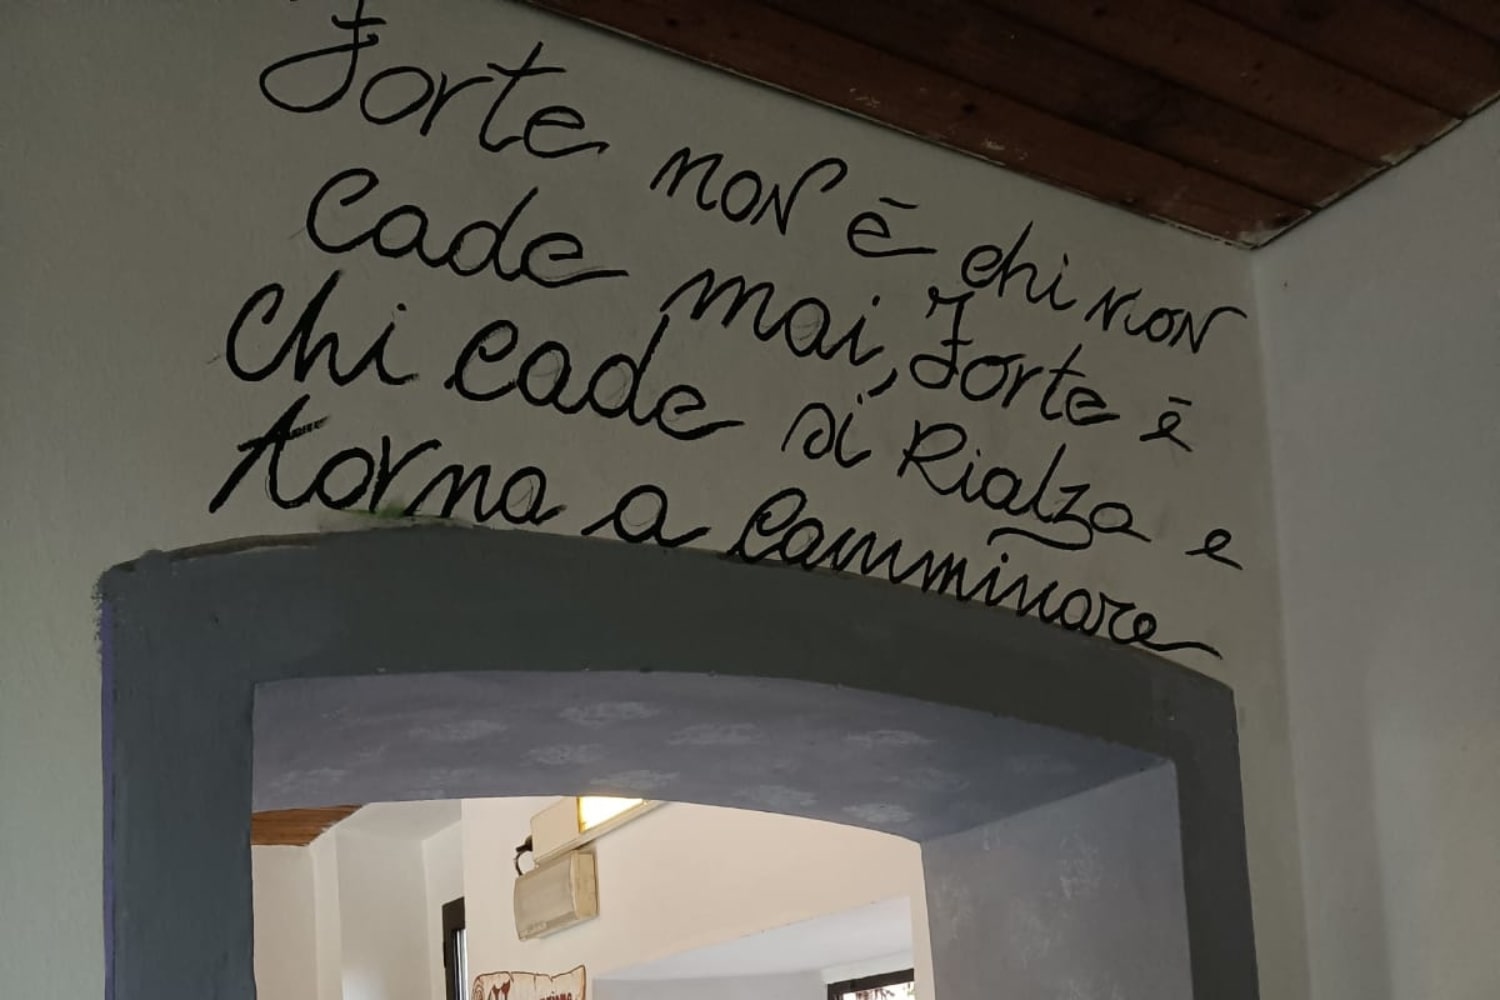 Forte non è chi non
cade mai, Forte è
chi cade si Rialza e
torna a camminare